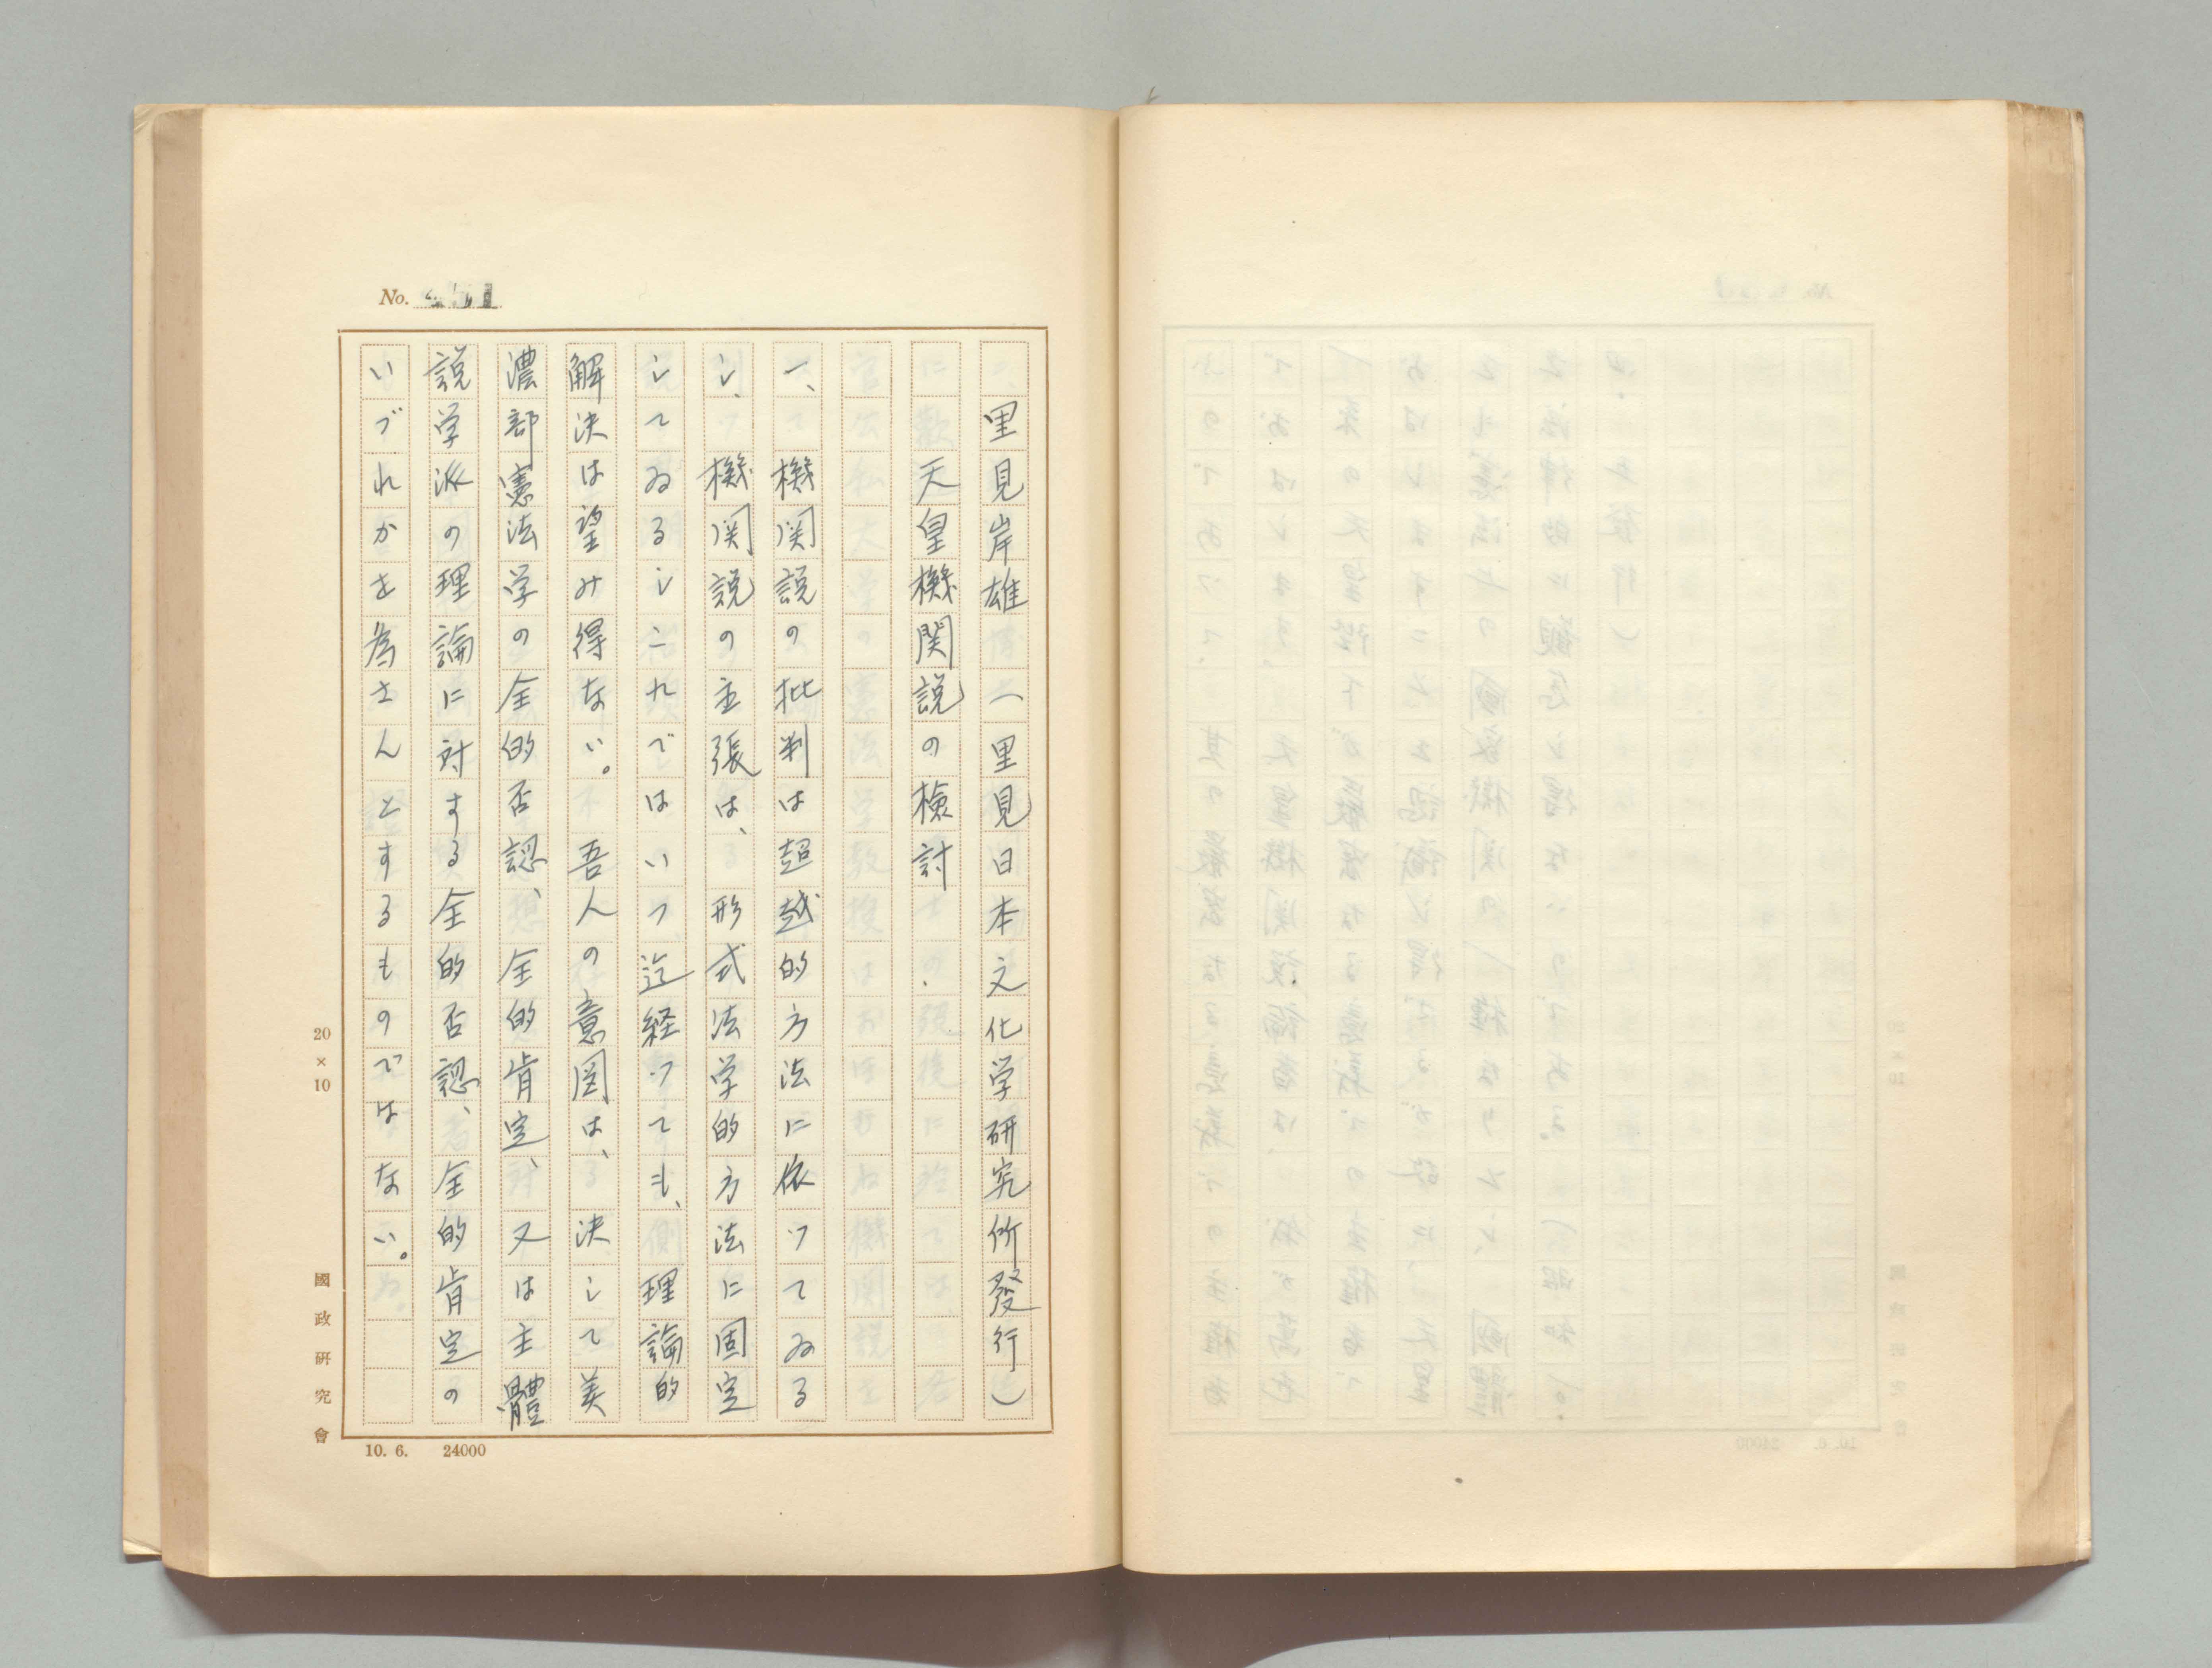 里見岸雄（里見日本文化学研究所發行）
天皇機関説の檢討
一、機関説の批判は超越的方法に依つてゐる
し、機関説の主張は、形式法学的方法に固定
してゐるしこれではいつ迄経つても、理論的
解決は望み得ない。吾人の意図は、決して美
濃部憲法学の全的否認、全的肯定、又は主體
説学派の理論に対する全的否認、全的肯定の
いづれかを為さんとするものではない。
No.
20×10
國政研究會
10. 6. 24000